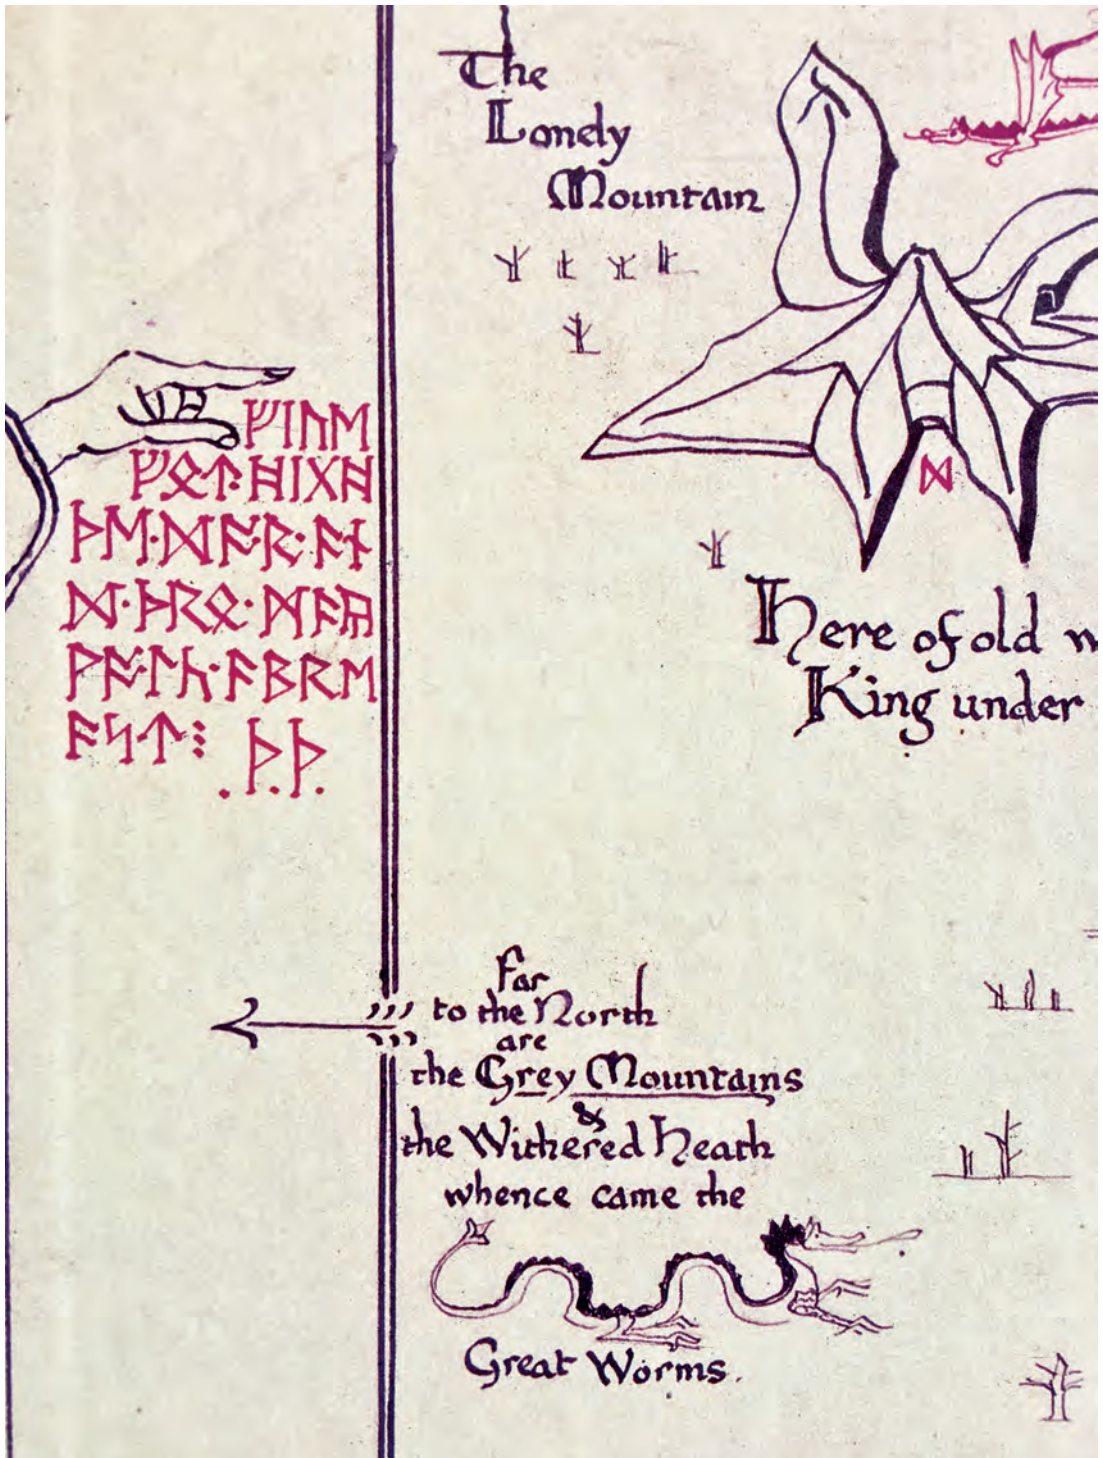 The
Lonely
Mountain
ᚠᛁᚢᛖ
ᚠᛟᛏ·ᚻᛁᚷᚻ
ᚦᛖ·ᛞᚩᚱ·ᚫᚾ
ᛞ·ᚦᚱᛟ·ᛗᚫᚣ
ᚹᚩᛚᚳ·ᚫᛒᚱᛖ
ᚫᛋᛏ⁝ .ᚦ.ᚦ.
ᛞ
Here of old
King under
Far
to the North
are
the Grey Mountains
&
the Withered Heath
whence came the
Great Worms.